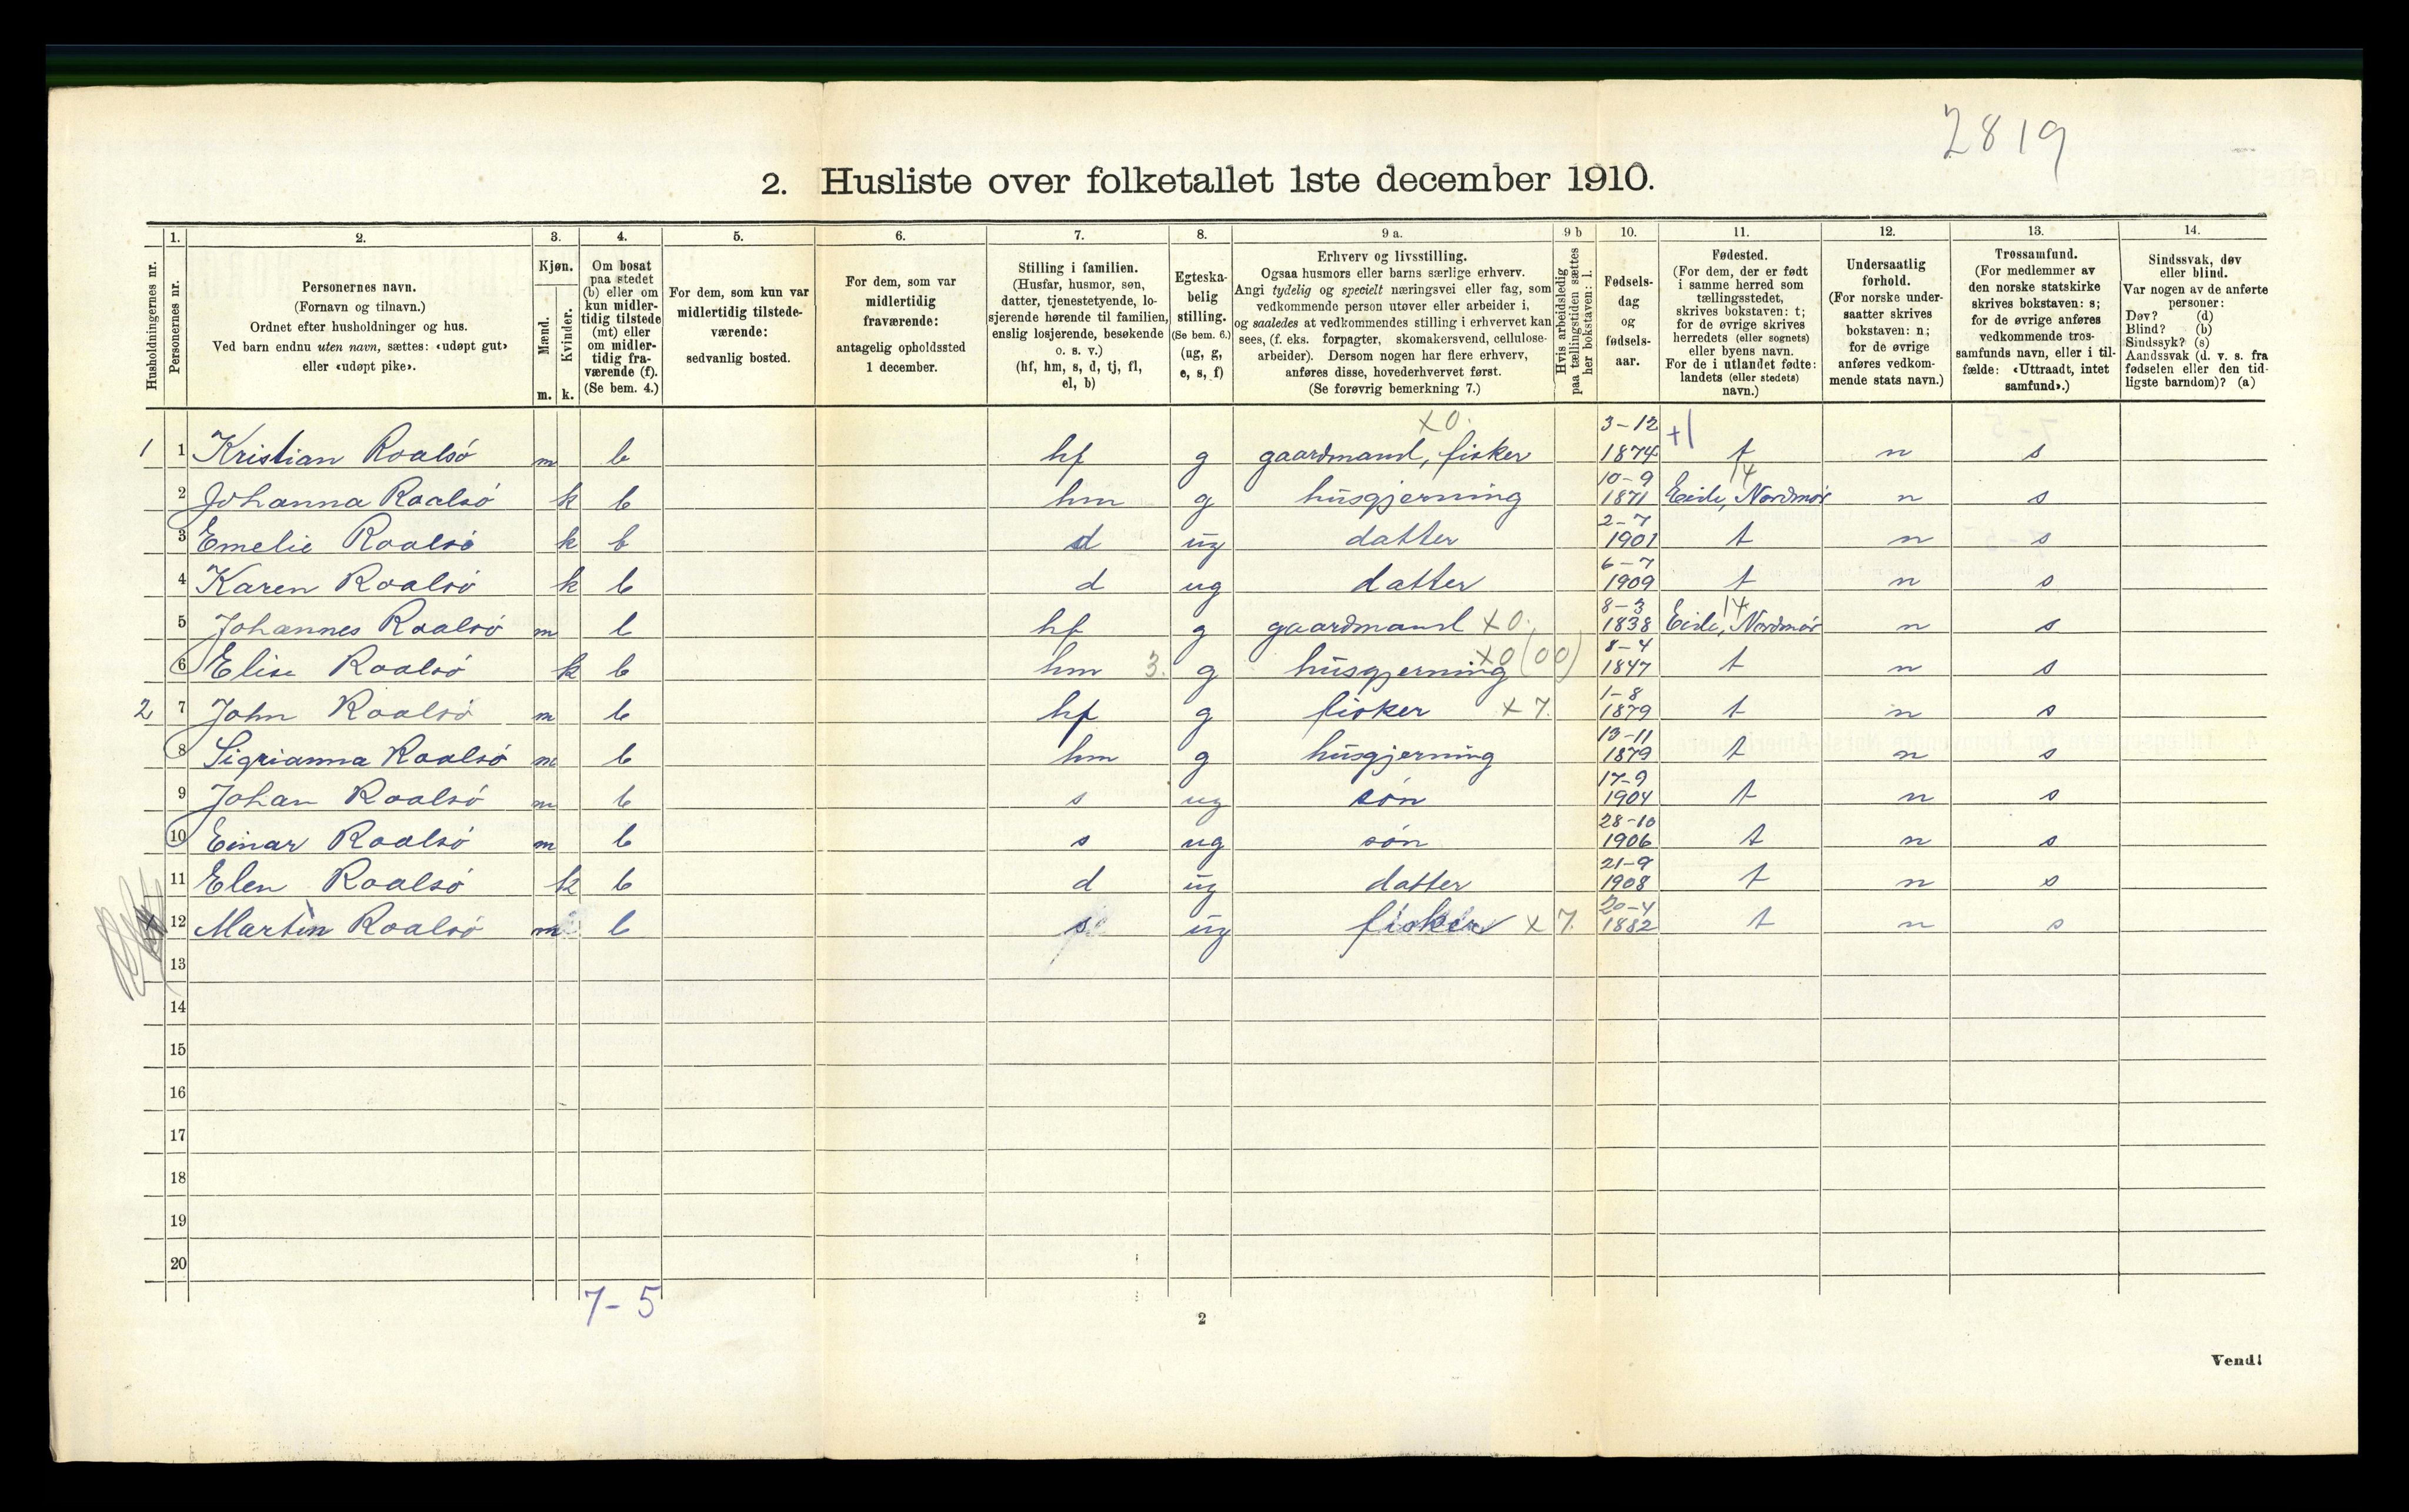 2819
2. Husliste over folketallet 1ste december 1910.
Husholdningernes nr.
1. Personernes nr.
2. Personernes navn. (Fornavn og tilnavn.) Ordnet efter husholdninger og hus. Ved barn endnu uten navn, sættes: «udøpt gut» eller «udøpt pike».
3. Kjøn. Mænd. m. Kvinder. k.
4. Om bosat paa stedet (b) eller om kun midlertidig tilstede (mt) eller om midlertidig fraværende (f). (Se bem. 4.)
5. For dem, som kun var midlertidig tilstedeværende: sedvanlig bosted.
6. For dem, som var midlertidig fraværende: antagelig opholdssted 1 december.
7. Stilling i familien. (Husfar, husmor, søn, datter, tjenestetyende, losjerende hørende til familien, enslig losjerende, besøkende o. s. v.) (hf, hm, s, d, tj, fl, el, b)
8. Egteskabelig stilling. (Se bem. 6.) (ug, g, e, s, f)
9 a. Erhverv og livsstilling. Ogsaa husmors eller barns særlige erhverv. Angi tydelig og specielt næringsvei eller fag, som vedkommende person utøver eller arbeider i, og saaledes at vedkommendes stilling i erhvervet kan sees, (f. eks. forpagter, skomakersvend, cellulosearbeider). Dersom nogen har flere erhverv, anføres disse, hovederhvervet først. (Se forøvrig bemerkning 7.)
9 b Hvis arbeidsledig paa tællingstiden sættes her bokstaven: l.
10. Fødselsdag og fødselsaar.
11. Fødested. (For dem, der er født i samme herred som tællingsstedet, skrives bokstaven: t; for de øvrige skrives herredets (eller sognets) eller byens navn. For de i utlandet fødte: landets (eller stedets) navn.)
12. Undersaatlig forhold. (For norske undersaatter skrives bokstaven: n; for de øvrige anføres vedkommende stats navn.)
13. Trossamfund. (For medlemmer av den norske statskirke skrives bokstaven: s; for de øvrige anføres vedkommende trossamfunds navn, eller i tilfælde: «Uttraadt, intet samfund».)
14. Sindssvak, døv eller blind. Var nogen av de anførte personer: Døv? (d) Blind? (b) Sindssyk? (s) Aandssvak (d. v. s. fra fødselen eller den tidligste barndom)? (a)
1 1 Kristian Roalsö m b hf g gaardmand, fisker x0. 3-12 1874 +1 t n s
2 Johanna Roalsö k b hm g husgjerning 10-9 1871 Eide, Nordmør 14 n s
3 Emelie Roalsö k b d ug datter 2-7 1901 t n s
4 Karen Roalsö k b d ug datter 6-7 1909 t n s
5 Johannes Roalsö m b hf g gaardmand x0. 8-3 1838 Eide, Nordmør 14 n s
6 Elise Roalsö k b hm 3. g husgjerning x0(00) 8-4 1847 t n s
2 7 John Roalsö m b hf g fisker x7. 1-8 1879 t n s
8 Sigrianna Roalsö m b hm g husgjerning 13-11 1879 t n s
9 Johan Roalsö m b s ug sön 17-9 1904 t n s
10 Einar Roalsö m b s ug sön 28-10 1906 t n s
11 Elen Roalsö k b d ug datter 21-9 1908 t n s
12 Martin Roalsö m b s ug fisker x7. 20-4 1882 t n s
13
14
15
16
17
18
19
20
7-5
2
Vend!